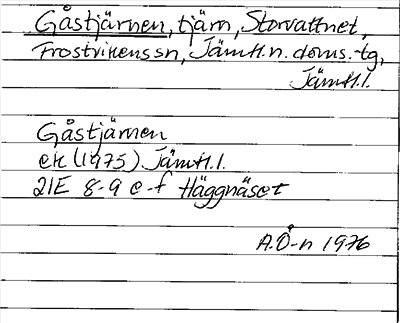 Gåstjärnen, tjärn, Storvattnet,
Frostvikens sn, Jämtl. n. doms.-tg,
Jämtl. l.
Gåstjärnen
ek (1975) Jämtl. l.
21E 8-9 e-f Häggnäset
A.Ö-n 1976